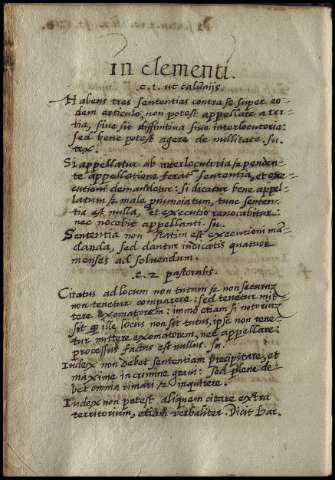 in clementi.
c. 1. ut calūnijs.
Habens tres sententias contra se super eo-
dem articulo, non potest appellare a ter-
tia, siue sit diffinitiua siue interlocutoria:
sed bene potest agere de nullitate. su.
tex.
Si appellatur ab interlocutoria & penden-
te appellatione feratur sententia, et exe-
cutioni demandetur: si dicatur bene appel-
latum & male pronuciatum, tunc senten-
tia est nulla, et executio reuocabitur:
nec nocebit appellanti. su.
Sententia non statim est executioni mā-
danda, sed dantur iudicatis quatuor
menses ad soluendum.
c. 2 pastoralis.
Citatus ad locum non tutum & non securum
non tenetur comparere: sed tenetur mit-
tere exoniatorem: immo etiam si not.
sit q̄ ille locus non sit tutus, ipse non tene-
tur mittere exoniatorem, nec appellare:
processus factus est nullus. su.
Iudex non debet sententiam precipitare, et
maxime in crimine graui: sed plene de-
bet omnia rimari & inquirere.
Iudex non potest aliquem citare extra
territorium, etiam verbaliter. Dicit Bar.